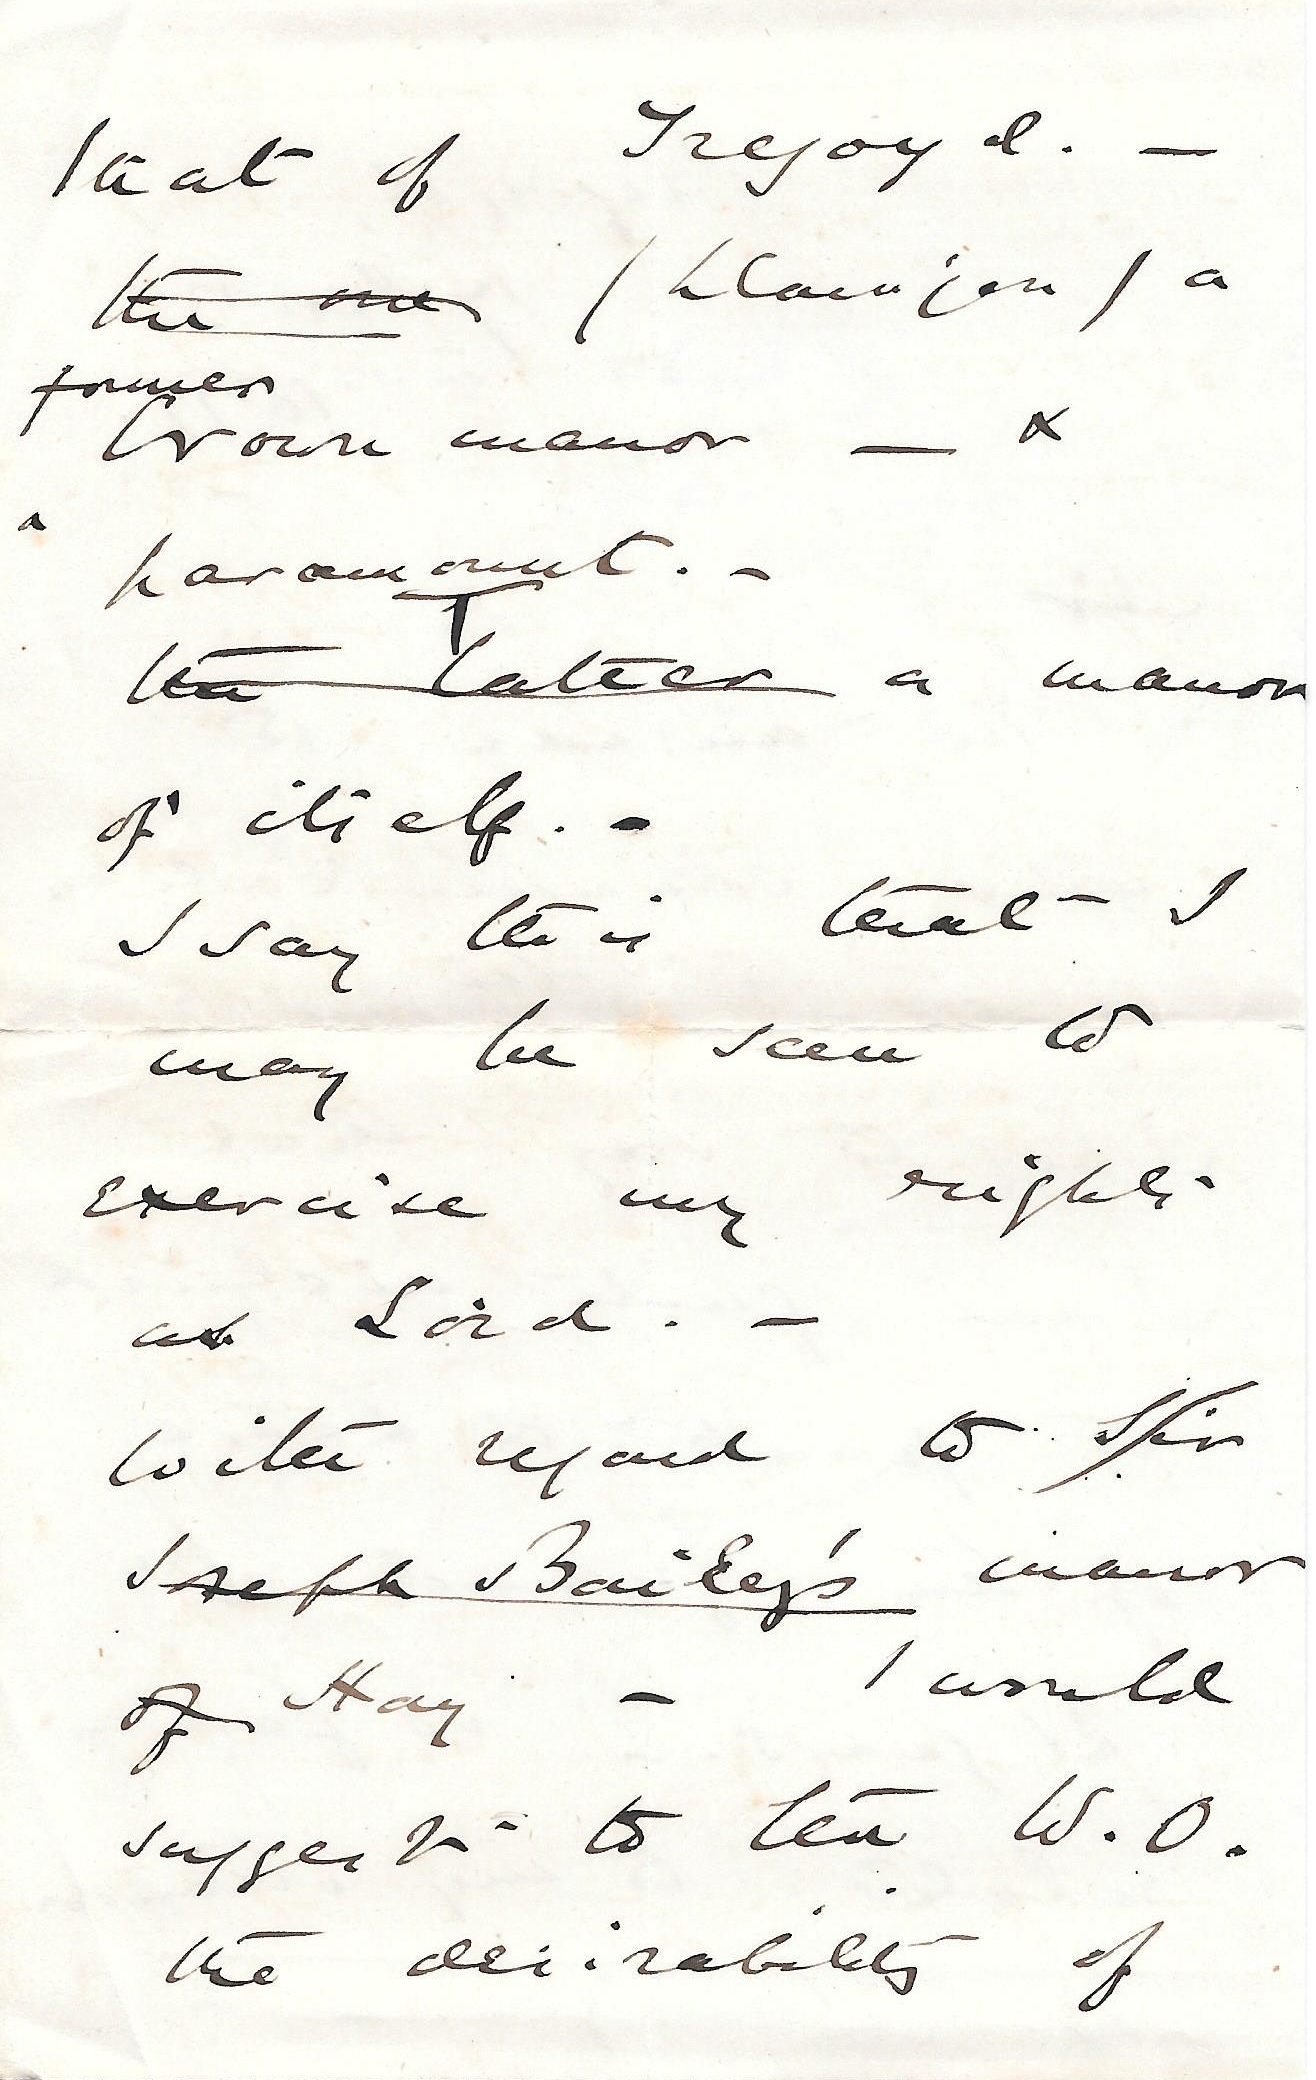 that of Tregoyd. —
the one (Llanigon) a
former
Crown manor — &
a
paramount. -
the latter a manor
of itself. -
I say this that I
may be seen to
exercise my rights
as Lord. —
With regard to Sir
Joseph Bailey's manor
of Hay — I would
suggest to the W.O.
the desirability of